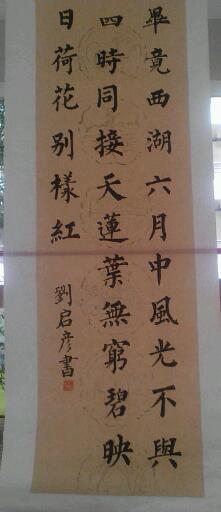 畢竟西湖六月中風光不與
四時同接天蓮葉無窮碧映
日荷花别樣紅
劉启彦書